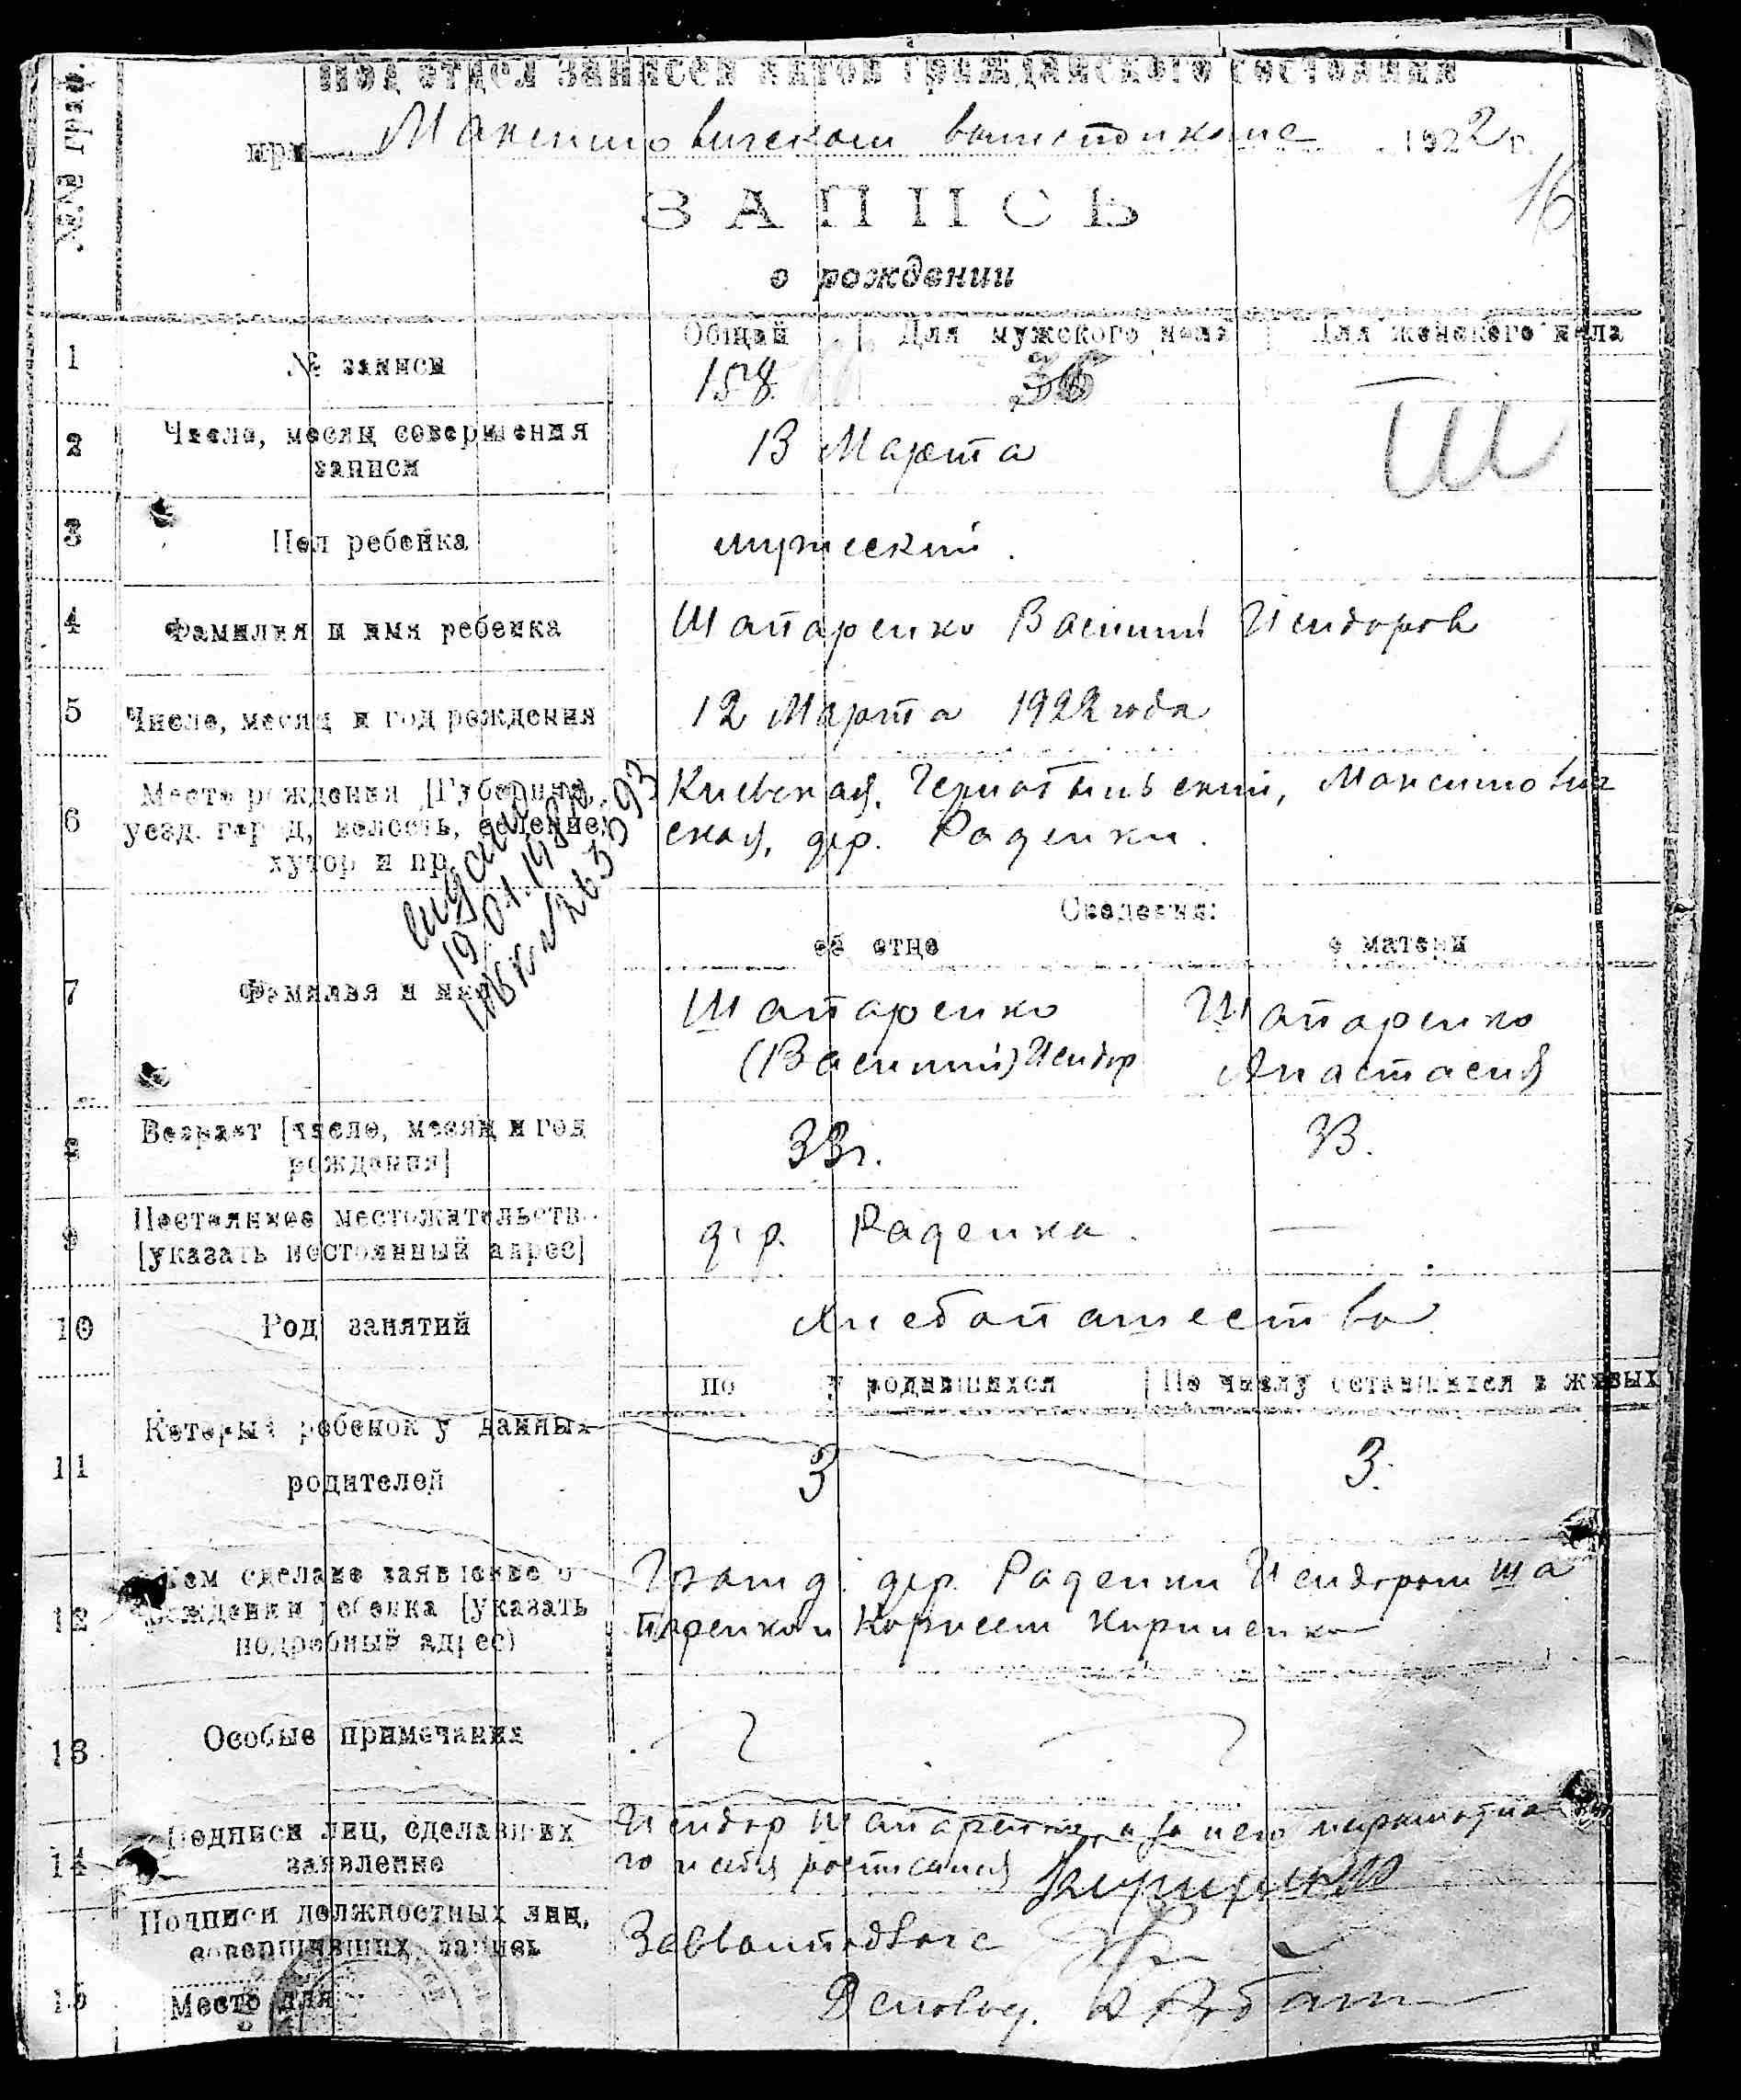 Под отдел записей актов гражданского состояния
№№ граф.
при Максимовическом волисполкоме 1922 г.
16
ЗАПИСЬ
о рождении
Общий Для мужского пола Для женского пола
1 № записи 158 36
Ш
2 Число, месяц совершения
записи 13 Марта
3 Пол ребенка мужеский.
4 Фамилия и имя ребенка Шапаренко Василий Исидоров
5 Число, месяц и год рождения 12 Марта 1922 года
6 Место рождения [Губерния, Киевская, Чернобыльский, Максимович
уезд. город, волость, селение, ская, дер. Раденки.
хутор и пр.
19.01.19
Сведения:
об отце о матери
7 Фамилия и имя Шапаренко Шапаренко
(Василий) Исидор Анастасия
8 Возраст [число, месяц и год 33 г. 33.
рождения]
9 Постоянное местожительство дер. Раденка. —
[указать постоянный адрес]
10 Род занятий Хлебопашество
по у родившихся По числу оставшихся в живых
11 Который ребенок у данных
родителей 3 3.
12 Кем сделано заявление о Гражд. дер. Раденки Исидором Ша
рождении ребенка [указать паренком Кириленко
подробный адрес)
13 Особые примечания
14 Подписи лиц, сделавших Исидор Шапаренко, а за него неграмотна
заявление го и себя росписался
Подписи должностных лиц,
совершивших запись
15 Место для Деловод.